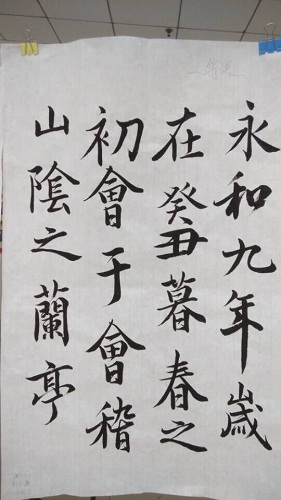 永和九年歲
在癸丑暮春之
初會于會稽
山陰之蘭亭